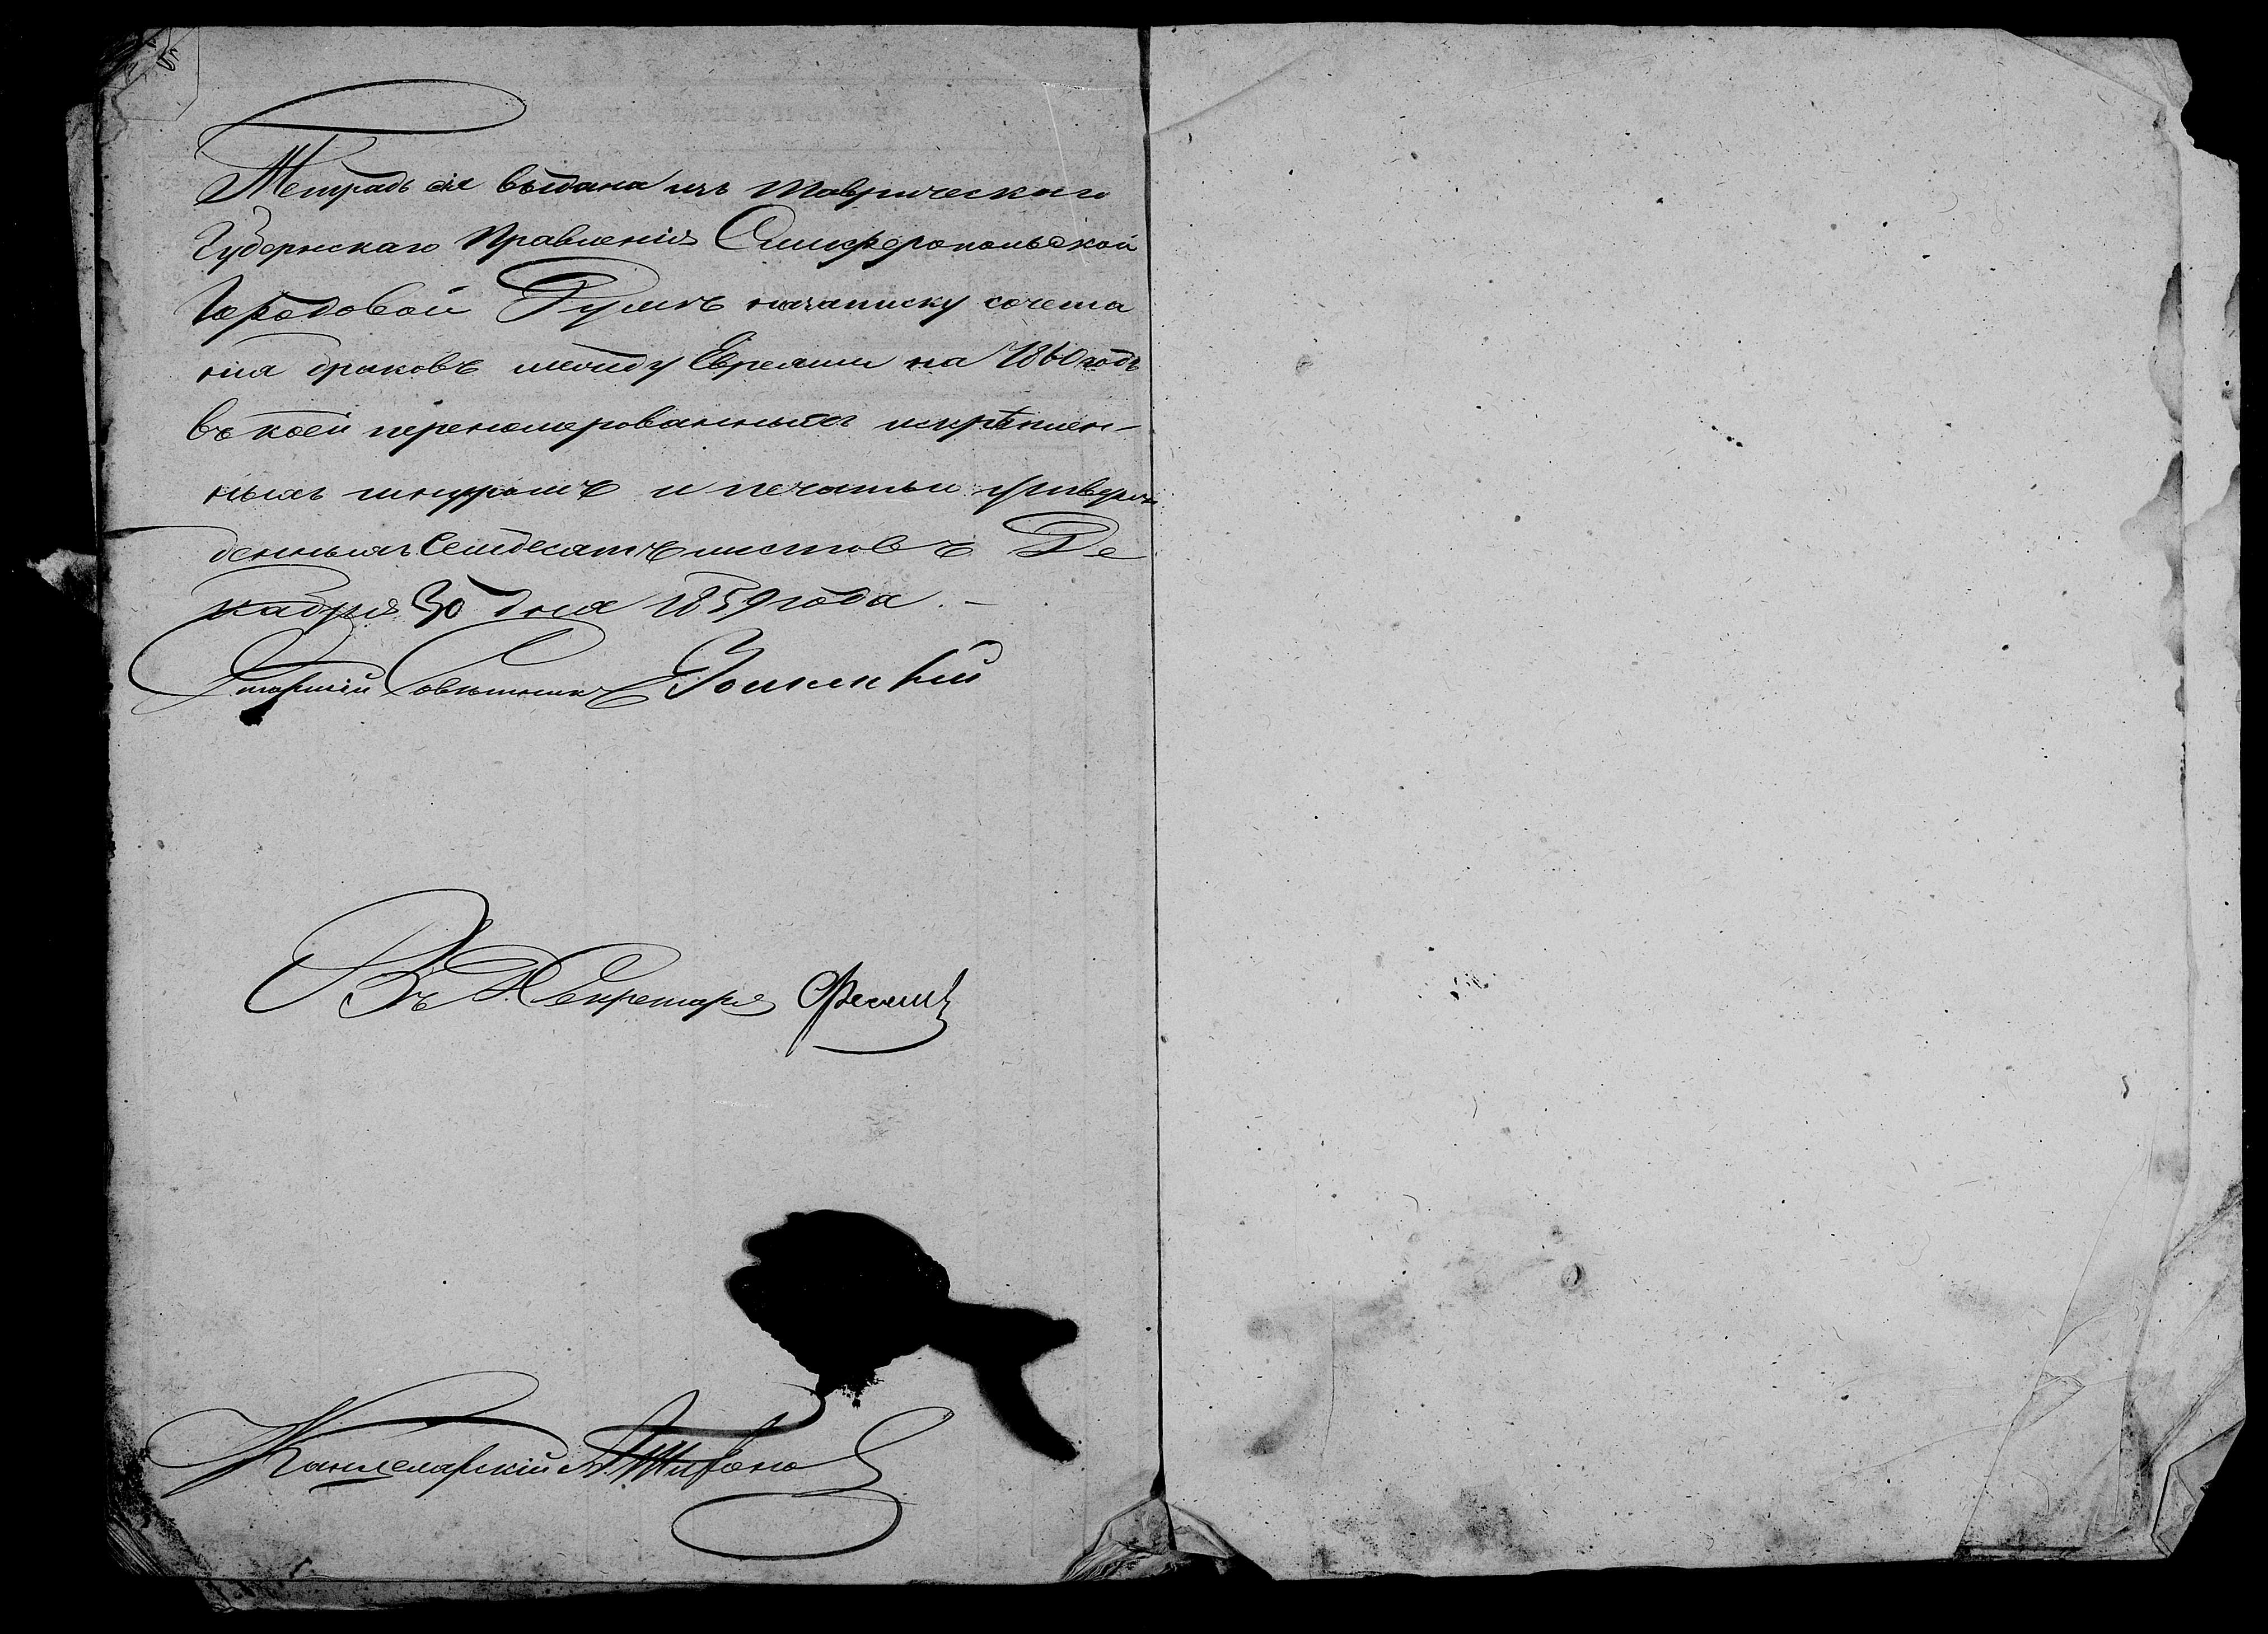 Тетрадь сія выдана изъ Таврическаго
Губернскаго Правленія Симферопольской
Городовой Думѣ на записку сочета
нія браковъ между Евреями на 1860 годъ
въ коей перенумерованныхъ скрѣплен-
ныхъ шнуромъ и печатью утверж
денныхъ Семдесятъ листовъ Де
кабря 30 дня 1859 года.-
Старшій Совѣтникъ
Въ Д. Секретаря
Канцелярскій